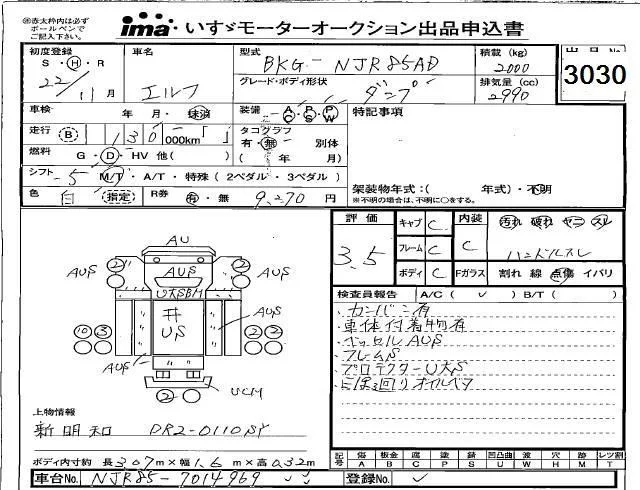 ㊟赤太枠内は必ず
ボールペンで
ご記入下さい。
ima いすゞモーターオークション出品申込書
初度登録 車名 型式 積載 (kg) 出品No
S・H・R エルフ BKG-NJR85AD 2000 3030
22/11月 グレード・ボディ形状 ダンプ 排気量 (cc) 2990
車検 年 月・抹消 装備 A/C P/S P/W 特記事項
走行 (B) 130 000km「 」 タコグラフ
有・無 別体
燃料 G・D・HV 他( ) ( 年 月)
シフト 5 M/T・A/T・特殊 (2ペダル・3ペダル) 架装物年式:( 年式)・不明
色 白 (指定) R券 有・無 9,270円 ※不明の場合は、不明に○をする。
評価 キャブ C 内装 汚れ 破れ ヤニ スレ
3.5 フレーム C C ハンドルスレ
ボディ C Fガラス 割れ 線 点傷 イバリ
検査員報告 A/C ( ✓ ) B/T ( )
・カンバン有
・車体付着物有
・ベッセルAUS
・フレームS
・プロテクターU大S
AU
2 AUS 2
AUS AUS
U大SBM
井
US AUS
10 3 2 2
AUS
UCM
2
上物情報
新明和 DR2-0110SY
ボディ内寸約 長3.07m×幅1.6m×高0.32m
記号 傷 板金 腐 塗 錆 凹凸曲 波 穴 跡 レツ割
A B C P S U W H M T
車台No. NJR85-7014969 登録No.